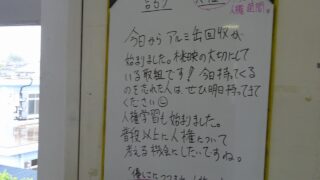 人権週間
今日から アルミ缶回収が
始まりました。桜映の大切にして
いる取組です！今日持ってくる
のを忘れた人は、ぜひ明日持ってきて
ください
人権学習も始まりました。
普段以上に人権について
考える機会にしたいですね。